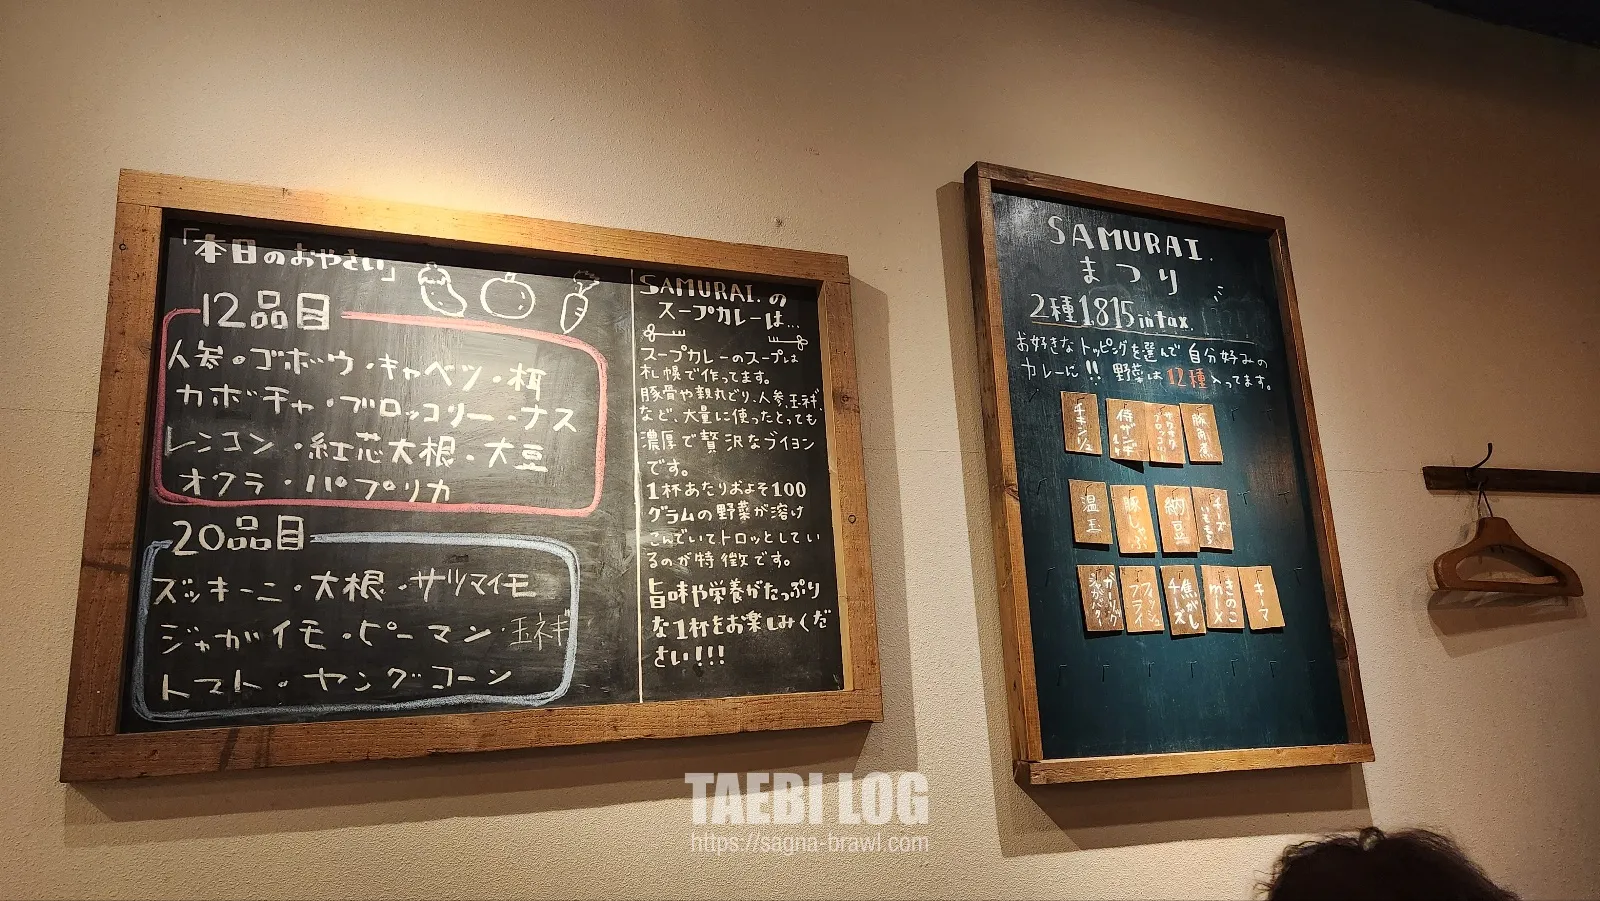 「本日のおやさい」
12品目
人参・ゴボウ・キャベツ・
カボチャ・ブロッコリー・ナス
レンコン・紅芯大根・大豆
オクラ・パプリカ
20品目
ズッキーニ・大根・サツマイモ
ジャガイモ・ピーマン・玉ネギ
トマト・ヤングコーン
SAMURAI.の
スープカレーは...
スープカレーのスープは
札幌で作ってます。
豚骨や穀丸どり、人参、玉ネギ、
など、大量に使ったとっても
濃厚で贅沢なブイヨン
です。
1杯あたりおよそ100
グラムの野菜が溶け
こんでいてトロッとしてい
るのが特徴です。
旨味や栄養がたっぷり
な1杯をお楽しみくだ
さい!!!
SAMURAI.
まつり
2種1.815in tax.
お好きなトッピングを選んで自分好みの
カレーに!!野菜は12種入ってます。
チキン1/2
侍ザンギ
サクサクブロッコリー
豚角煮
温玉
豚しゃぶ
納豆
チーズいももち
フィッシュフライ
焦がしチーズ
きのこmix
キーマ
TAEBI LOG
https://sagna-brawl.com